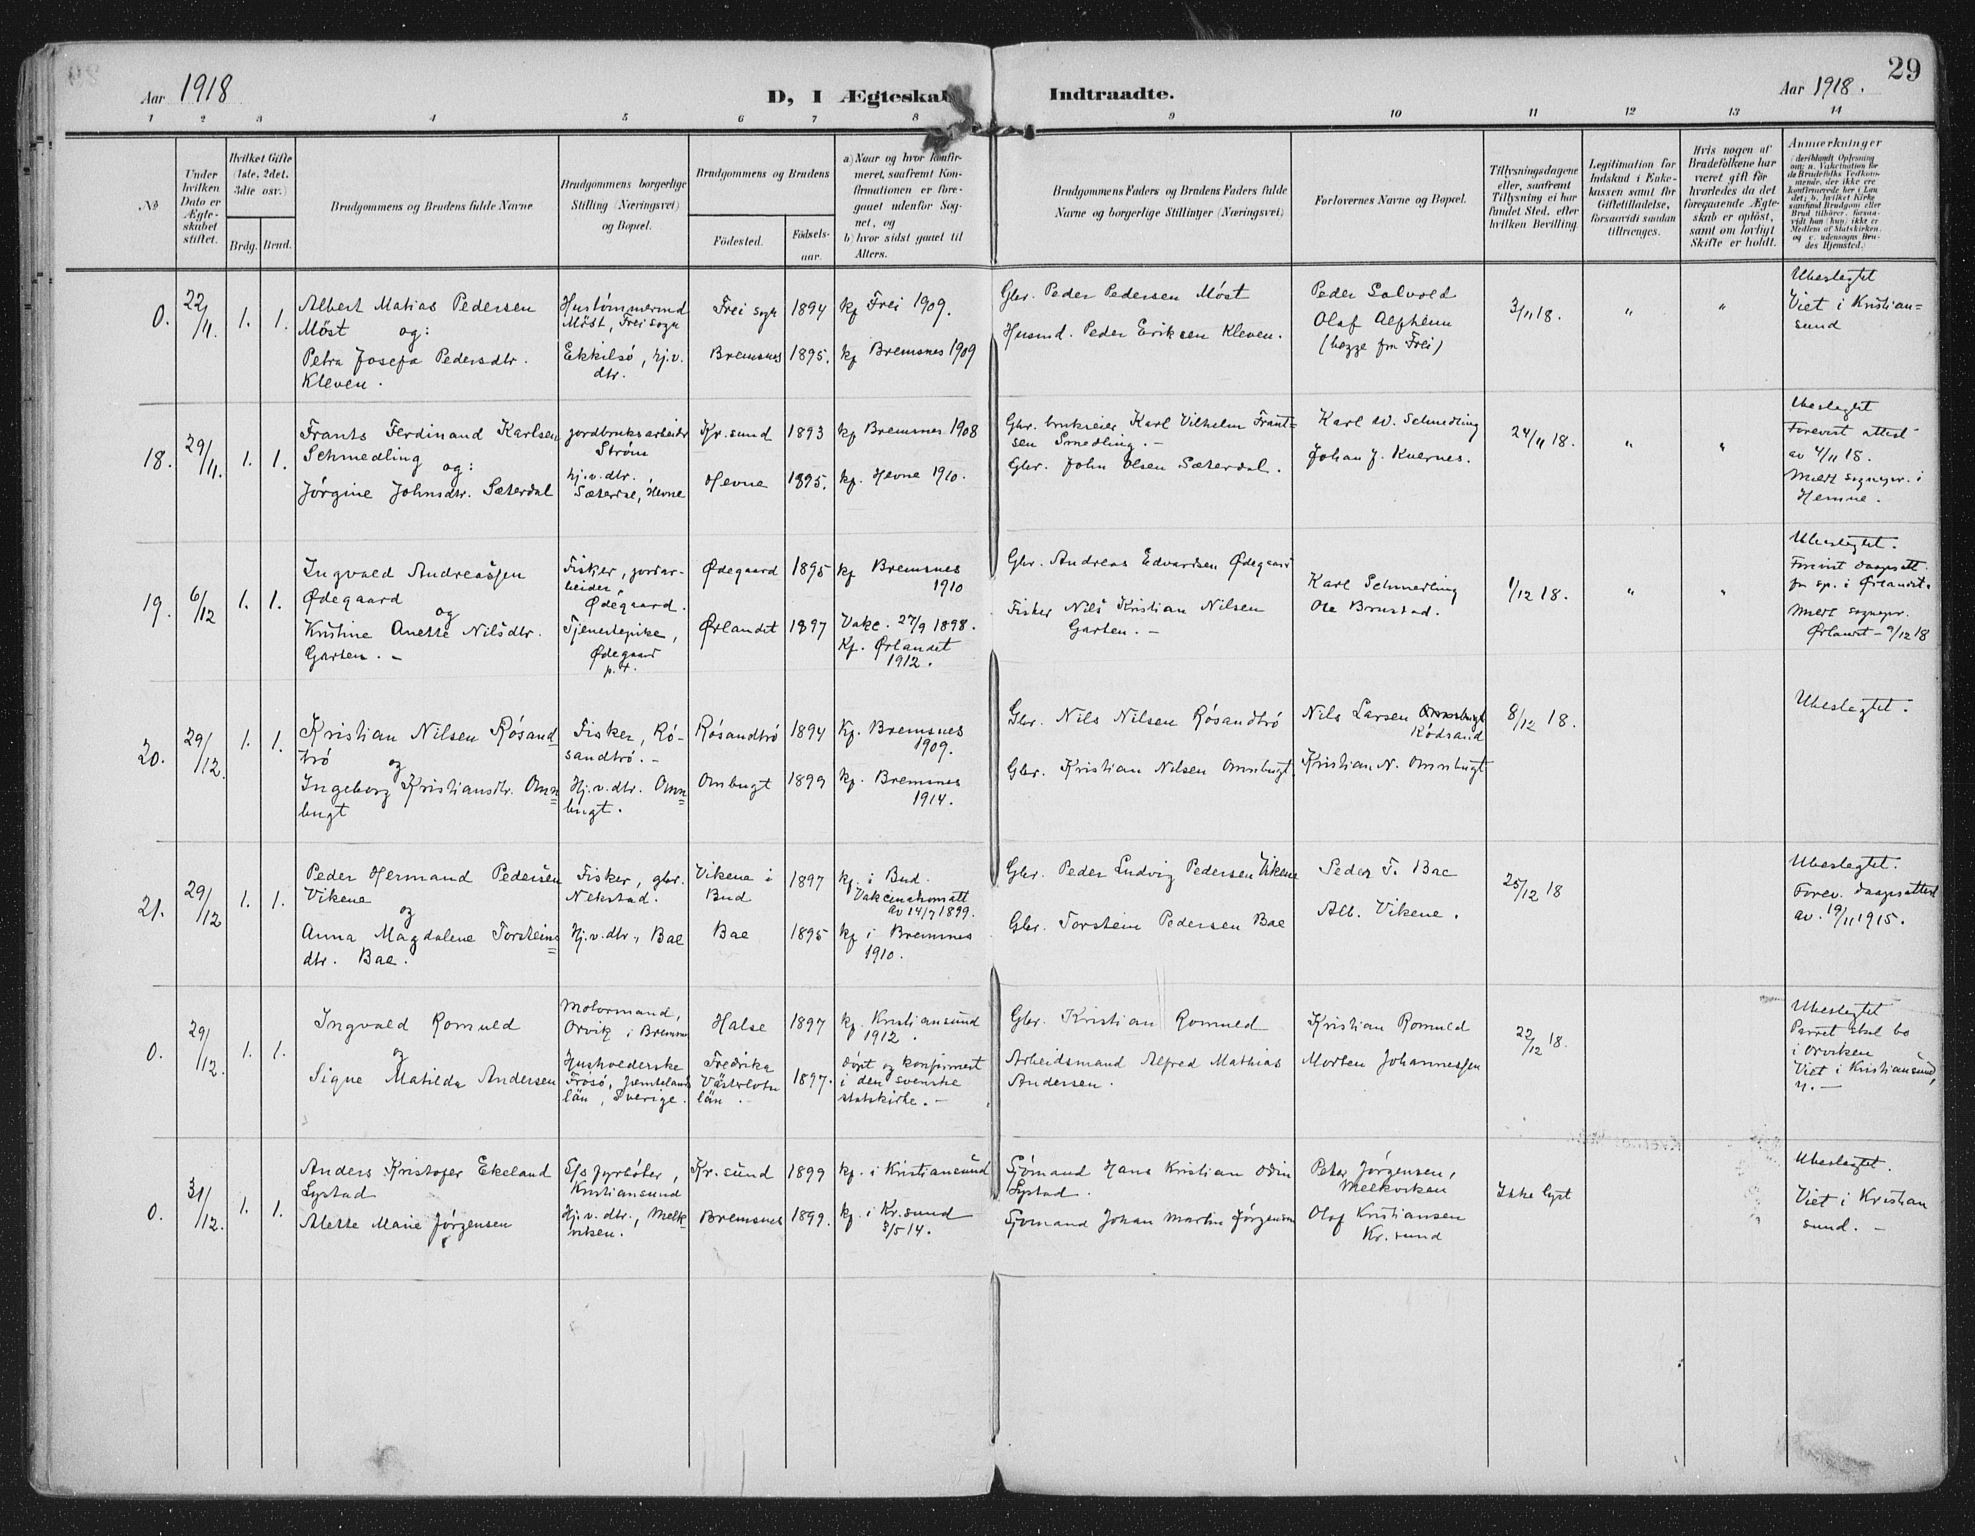 29
Aar 1918
D, I Ægteskab Indtraadte.
Aar 1918.
1 2 3 4 5 6 7 8 9 10 11 12 13 14
No
Under
hvilken
Dato er
Ægte-
skabet
stiftet.
Hvilket Gifte
(1ste, 2det.
3die osv.)
Brdg. Brud.
Brudgommens og Brudens fulde Navne
Brudgommens borgerlige
Stilling (Næringsvei)
og Bopæl.
Brudgommens og Brudens
Födested.
Födsels-
aar.
a) Naar og hvor konfir-
meret, saafremt Kon-
firmationen er fore-
gaaet udenfor Sog-
net, og
b) hvor sidst gaaet til
Alters.
Brudgommens Faders og Brudens Faders fulde
Navne og borgerlige Stillinger (Næringsvei)
Forlovernes Navne og Bopæl.
Tillysningsdagene
eller, saafremt
Tillysning ei har
fundet Sted, efter
hvilken Bevilling.
Legitimation for
Indskud i Enke-
kassen samt for
Giftetilladelse,
forsaavidt saadan
tiltrænges.
Hvis nogen af
Brudefolkene har
været gift før
hvorledes da det
foregaaende Ægte-
skab er opløst,
samt om lovligt
Skifte er holdt.
Anmærkninger
0. 22/11. 1. 1.
Albert Matias Pedersen
Møst og:
Petra Josefa Pedersdtr.
Kleven.
Hustømmermd
Møst, Frei sogn
Ekkilsø, hj.v.
dtr.
Frei sogn 1894 kf Frei 1909.
Bremsnes 1895. kf Bremsnes 1909
Gbr. Peder Pedersen Møst
Husmd. Peder Eriksen Kleven.
Peder Solvold
Olaf
(begge fra Frei)
3/11 18. " "
Ubeslegtet
Viet i Kristian-
sund
18. 29/11. 1. 1.
Frants Ferdinand Karlsen
Schmedling og:
Jørgine Johnsdtr. Sæterdal
jordbruksarbeider
Strøm
hj.v.dtr.
Sæterdal, Hevne
Kr.sund 1893 kf Bremsnes 1908
Hevne 1895. kf. Hevne 1910.
Gbr. brukseier Karl Vilhelm Frant-
sen Smedling. -
Gbr. John Olsen Sæterdal.
Karl W. Schmedling
Johan J. Kvernes.
24/11 18. " "
Ubeslegtet
Forevist attest
av 4/11 18.
Meldt sognepr. i
Hemne.
19. 6/12 1. 1.
Ingvald Andreassen
Ødegaard
og
Kristine Anette Nilsdtr.
Garten. -
Fisker, jordar-
beider,
Ødegaard.
Tjenestepike,
Ødegaard
p.t.
Ødegaard 1895 kf Bremsnes
1910
Ørlandet 1897 Vakc. 27/9 1898.
Kf. Ørlandet
1912.
Gbr. Andreas Edvardsen Ødegaard
Fisker Nils Kristian Nilsen
Garten. -
Karl Schmedling
Ole Brustad.
1/12 18. " "
Ubeslegtet.
Forevist daapsatt.
fra sp. i Ørlandet.
Meldt sognepr.
Ørlandet - 9/12 18
20. 29/12. 1. 1.
Kristian Nilsen Røsand-
trø og
Ingeborg Kristiansdtr. Omn-
bugt
Fisker, Rø-
sandtrø. -
Hj.v.dtr. Omn-
bugt.
Røsandtrø 1894 Kf. Bremsnes
1909.
Ombugt 1899 kf. Bremsnes
1914.
Gbr. Nils Nilsen Røsandtrø
Gbr. Kristian Nilsen Omnbugt.
Nils Larsen
Rødsand
Kristian N. Omnbugt
8/12 18.
Ubeslegtet.
21. 29/12 1. 1.
Peder Hermand Pedersen
Vikene
og
Anna Magdalene Torsteins-
dtr. Bae.
Fisker, gbr.
Nekstad.
Hj.v.dtr., Bae
Vikene i
Bud
1897 kf. i Bud.
Vakcinationsatt
av 14/7 1899.
Bae 1895 kf i Bremsnes
1910.
Gbr. Peder Ludvig Pedersen Vikene
Gbr. Torstein Pedersen Bae
Peder T. Bae
Alb. Vikene.
25/12 18
Ubeslegtet.
Forev. daapsattest
av. 19/11 1915.
0. 29/12. 1. 1.
Ingvald Romuld
og
Signe Matilda Andersen
Motormand,
Orvik i Bremsn
Husholderske
Frøsø, Jemtelands
län, Sverige.
Halse 1897 kf. Kristiansund
1912.
Fredrika
Västerbotn
län.
1897. døpt og konfirmert
i den svenske
statskirke. -
Gbr. Kristian Romuld
Arbeidsmand Alfred Mathias
Andersen.
Kristian Romuld
Morten Johannessen
22/12 18.
Ubeslegtet
Parret skal bo
i Orviken
Viet i Kristiansund,
N. -
0. 31/12. 1. 1.
Anders Kristofer Ekeland
Lystad
Mette Marie Jørgensen
S/s fyrbøter,
Kristiansund
Hj.v.dtr., Melk-
viken.
Kr.sund 1899 kf. i Kristiansund
Bremsnes 1899. kf. i Kr.sund
3/5 14.
Sjømand Hans Kristian Odin
Lystad.
Sjømand Johan Martin Jørgensen
Peter Jørgensen,
Melkviken
Olaf Kristiansen
Kr. sund
Ikke lyst
Ubeslegtet.
Viet i Kristian
sund. -